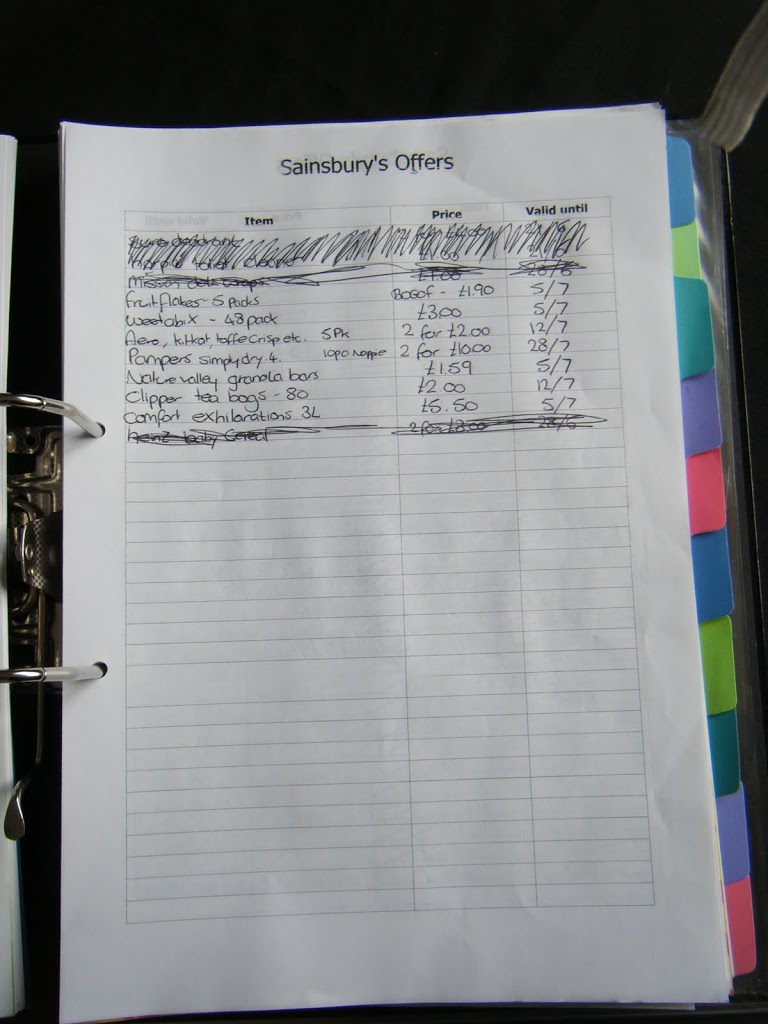 Sainsbury's Offers
Item Price Valid until
deodorant
Mission deli wraps £1.00 28/6
Fruitflakes - 5 packs BOGOF - £1.90 5/7
Weetabix - 48 pack £3.00 5/7
Aero, kitkat, toffeecrisp etc. 5Pk 2 for £2.00 12/7
Pampers simply dry 4. 2 for £10.00 28/7
Nature valley granola bars £1.59 5/7
Clipper tea bags - 80 £2.00 12/7
Comfort exhilarations 3L £5.50 5/7
Heinz baby Cereal 2 for £3.00 28/6